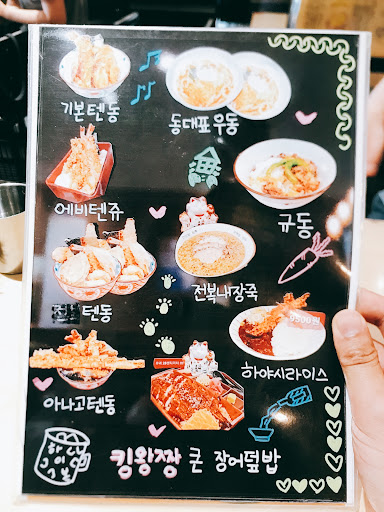 기본텐동
동대표우동
에비텐쥬
규동
텐동
전복내장죽
아나고텐동
하야시라이스
킹왕짱 큰 장어덮밥